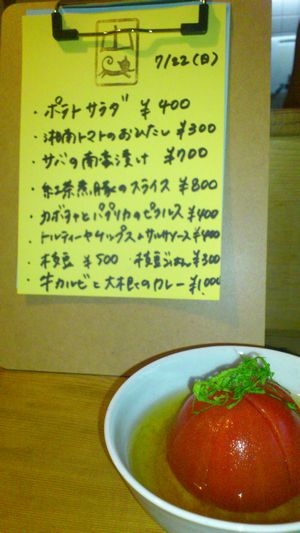 7/22(日)
・ポテトサラダ ¥400
・湘南トマトのおひたし ¥300
・サバの南蛮漬け ¥700
・紅茶煮豚のスライス ¥800
・カボチャとパプリカのピクルス ¥400
・トルティーヤチップス+サルサソース ¥400
・枝豆 ¥500 枝豆ごはん ¥300
・牛カルビと大根のカレー ¥1,000